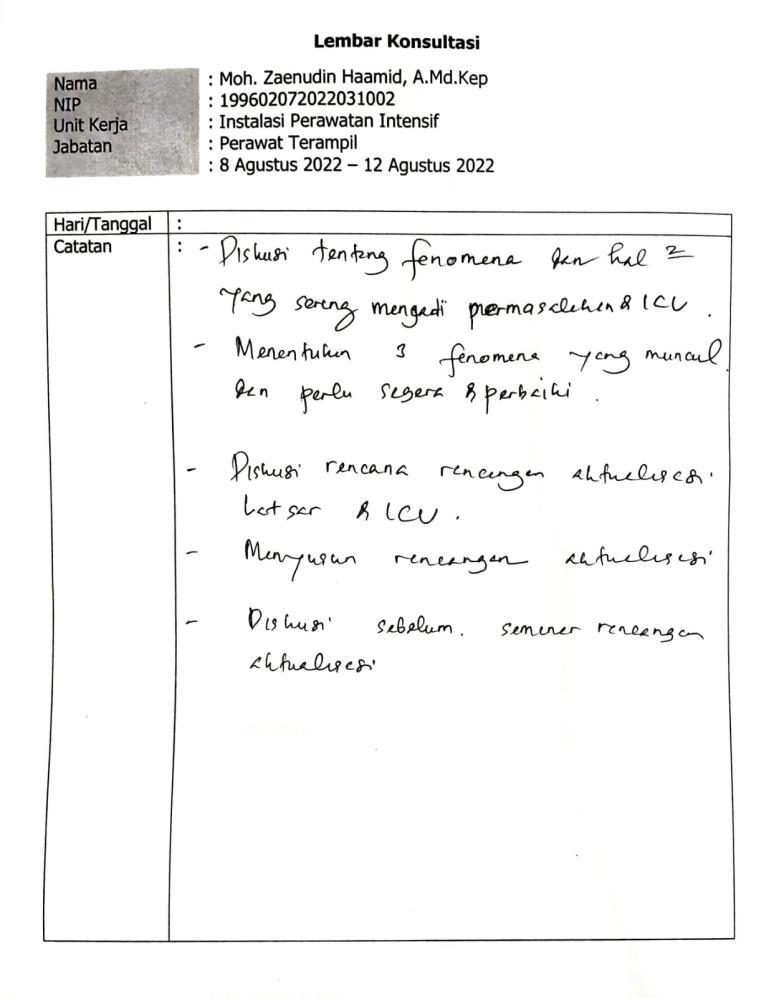 Lembar Konsultasi
Nama : Moh. Zaenudin Haamid, A.Md.Kep
NIP : 199602072022031002
Unit Kerja : Instalasi Perawatan Intensif
Jabatan : Perawat Terampil
: 8 Agustus 2022 – 12 Agustus 2022
Hari/Tanggal :
Catatan : - Diskusi tentang fenomena dan hal 2
yang sering mengadi permasalahan di ICU.
- Menentukan 3 fenomena yang muncul
dan perlu segera diperbaiki.
- Diskusi rencana rancangan aktualisasi
Latsar di ICU.
- Menyusun rancangan aktualisasi
- Diskusi sebelum. seminar rancangan
aktualisasi